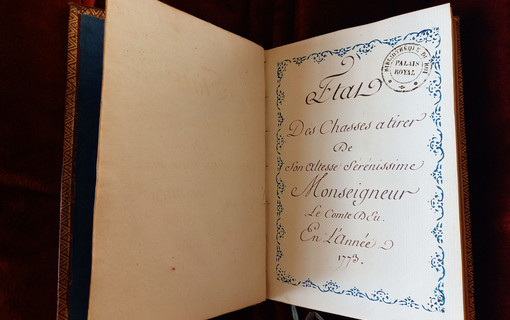 Etat
Des Chasses a tirer
De
Son Altesse Sérénissime
Monseigneur
Le Comte D'Eu.
En L'Année
1773.
BIBLIOTHEQUE DU ROI
PALAIS
ROYAL